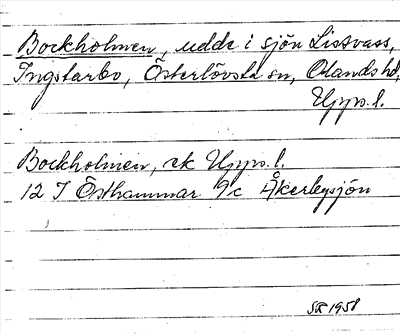 Bockholmen, udde i sjön Lissvass,
Ingstarbo, Österlövsta sn, Olands hd,
Upps. l.
Bockholmen, ek Upps. l.
12 I Östhammar 9c Åkerbysjön
SR 1958